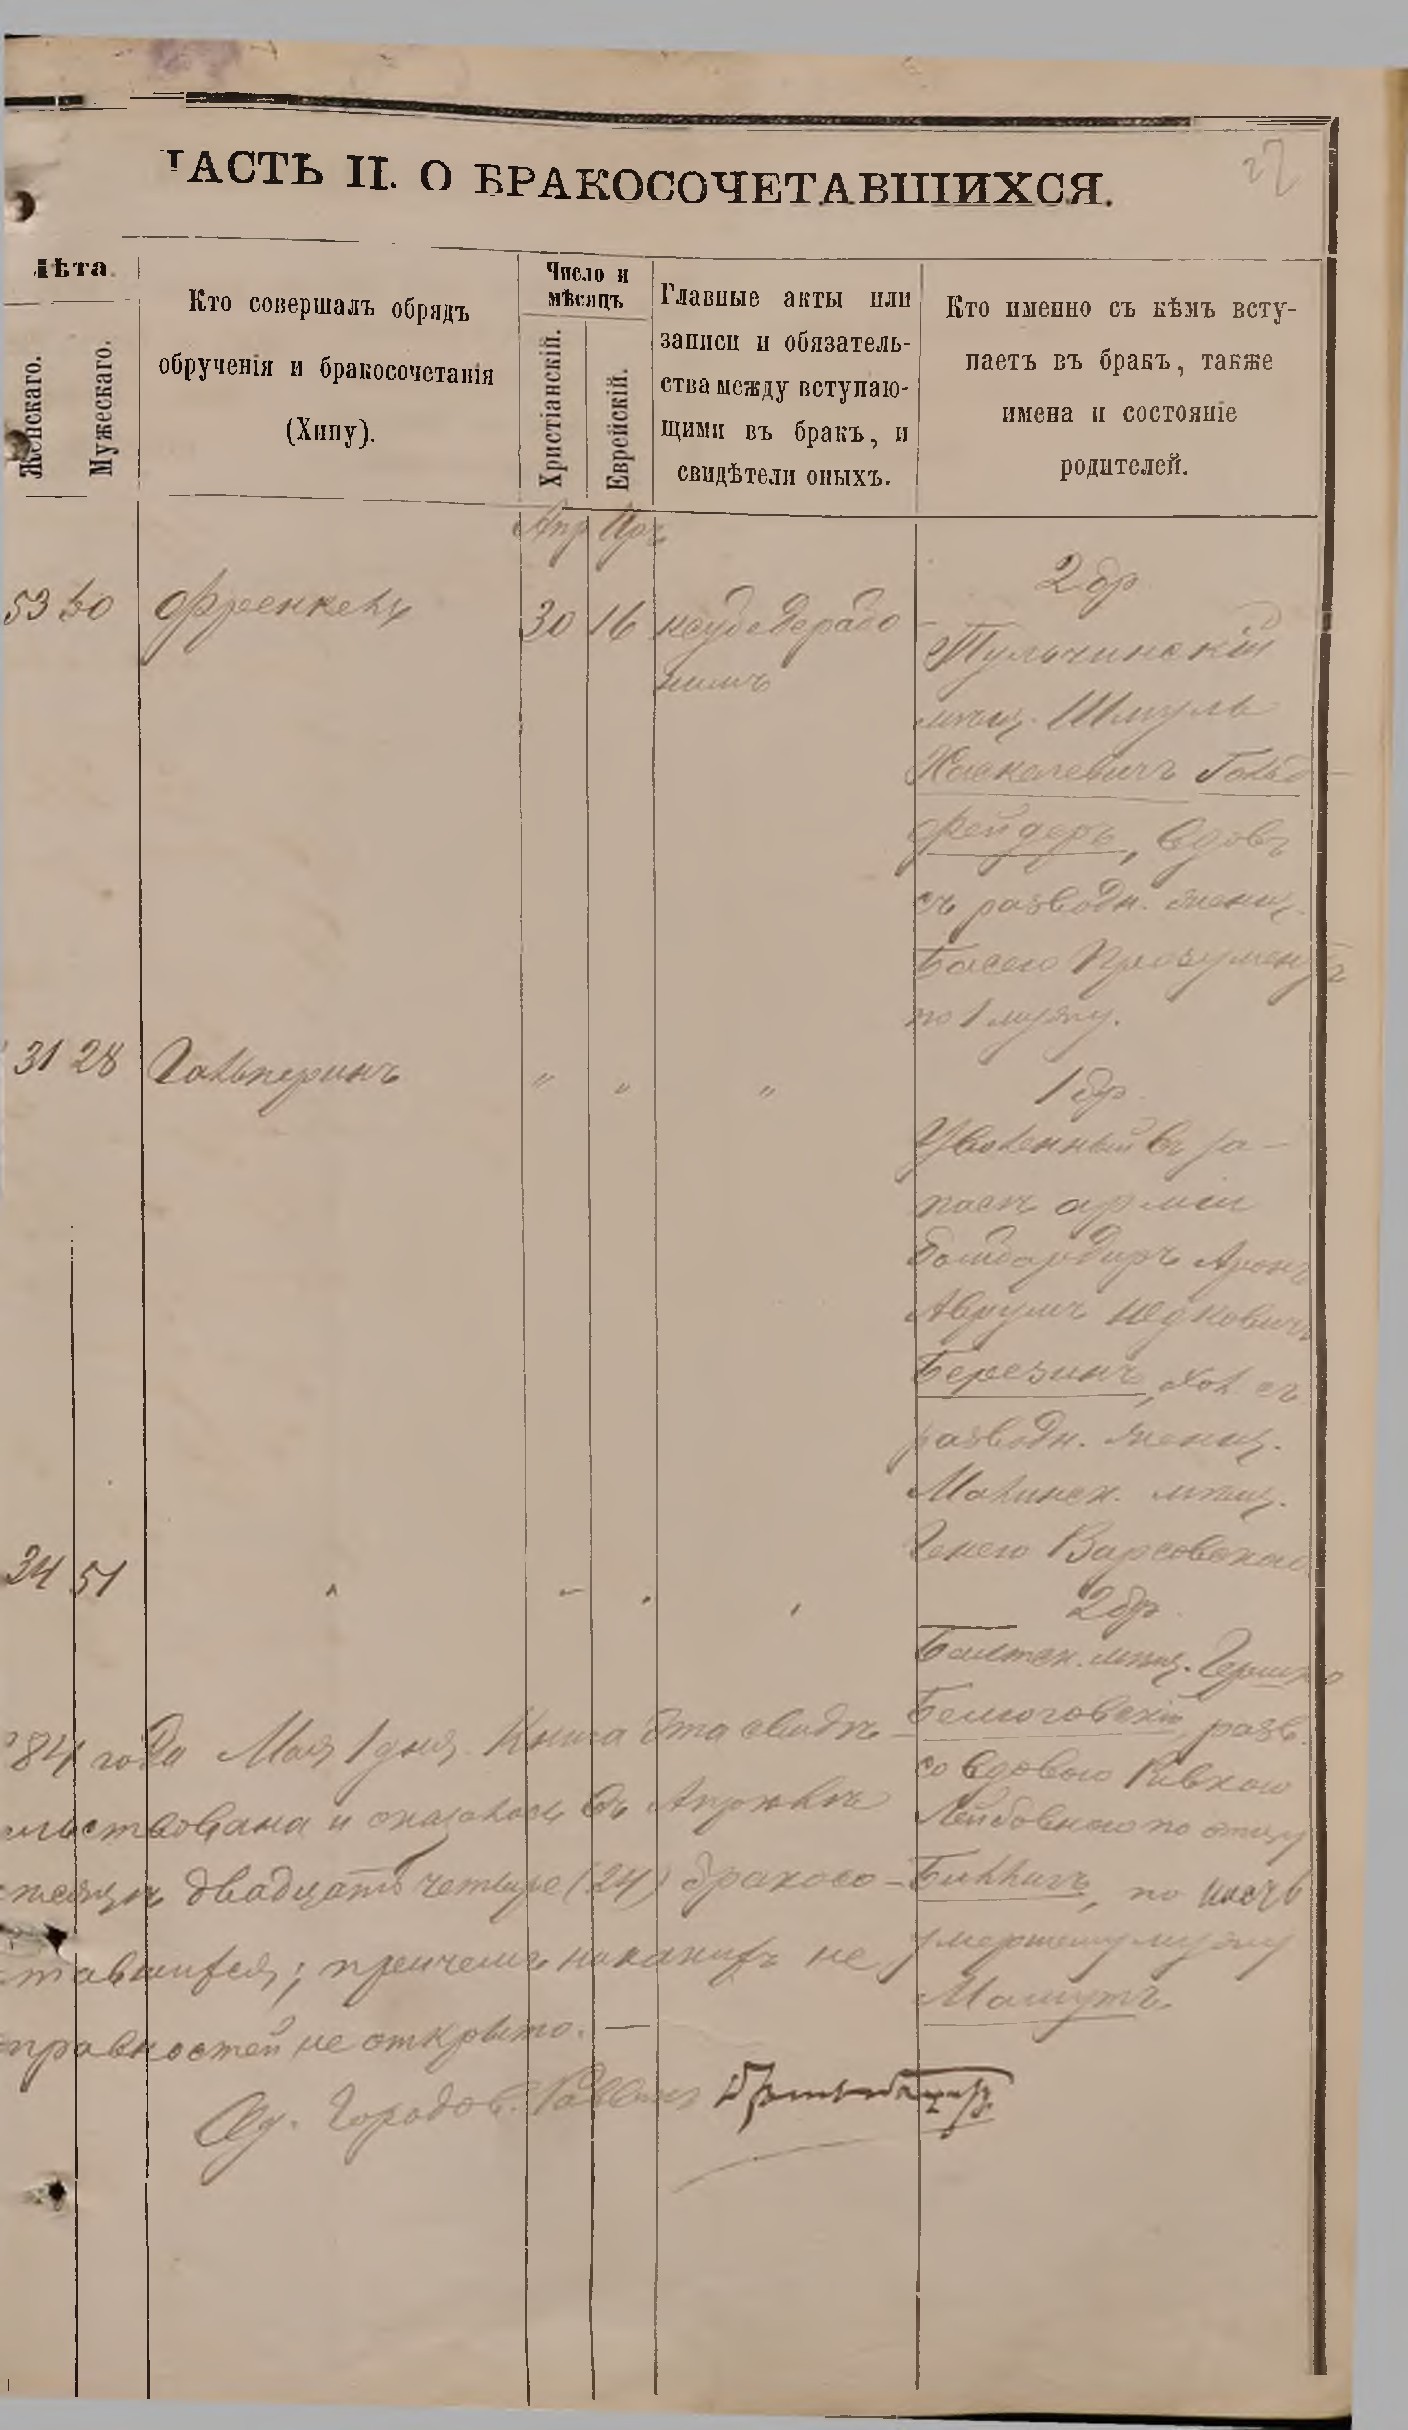 ЧАСТЬ II. О БРАКОСОЧЕТАВШИХСЯ.
27
Лѣта.
Женскаго.
Мужескаго.
Кто совершалъ обрядъ
обрученія и бракосочетанія
(Хипу).
Число и
мѣсяцъ
Христіанскій.
Еврейскій.
Главные акты или
записи и обязатель-
ства между вступаю-
щими въ бракъ, и
свидѣтели оныхъ.
Кто именно съ кѣмъ всту-
паетъ въ бракъ, также
имена и состояніе
родителей.
Апр Іяръ
53 50 Френкель 30 16
нимъ
2 бр.
Тульчинскій
мѣщ. Шмуль
Хаскелевичъ Гольд-
фрейдеръ, вдов.
съ разводн. женщ.
Басею Прозументъ
по 1 мужу.
31 28 Гальперинъ " " "
1 бр.
Уволенный въ за-
пасъ арміи
бомбардиръ Аронъ
Аврумъ Ицковичъ
Березинъ, хол. съ
разводн. женщ.
Малинск. мѣщ.
Генею Варсовскою
34 51 " " " "
2 бр.
Балтск. мѣщ. Гершко
разв.
со вдовою Ривкою
Лейбовною по отцу
по
умершему мужу
Машутъ.
84 года Мая 1 дня. Книга эта свидѣ-
тельствована и оказалось въ Апрѣлѣ
мѣсяцѣ двадцать четыре (24) бракосо-
четавшихся; причемъ никакихъ не
правностей не открыто. —
Городов. Раввинъ